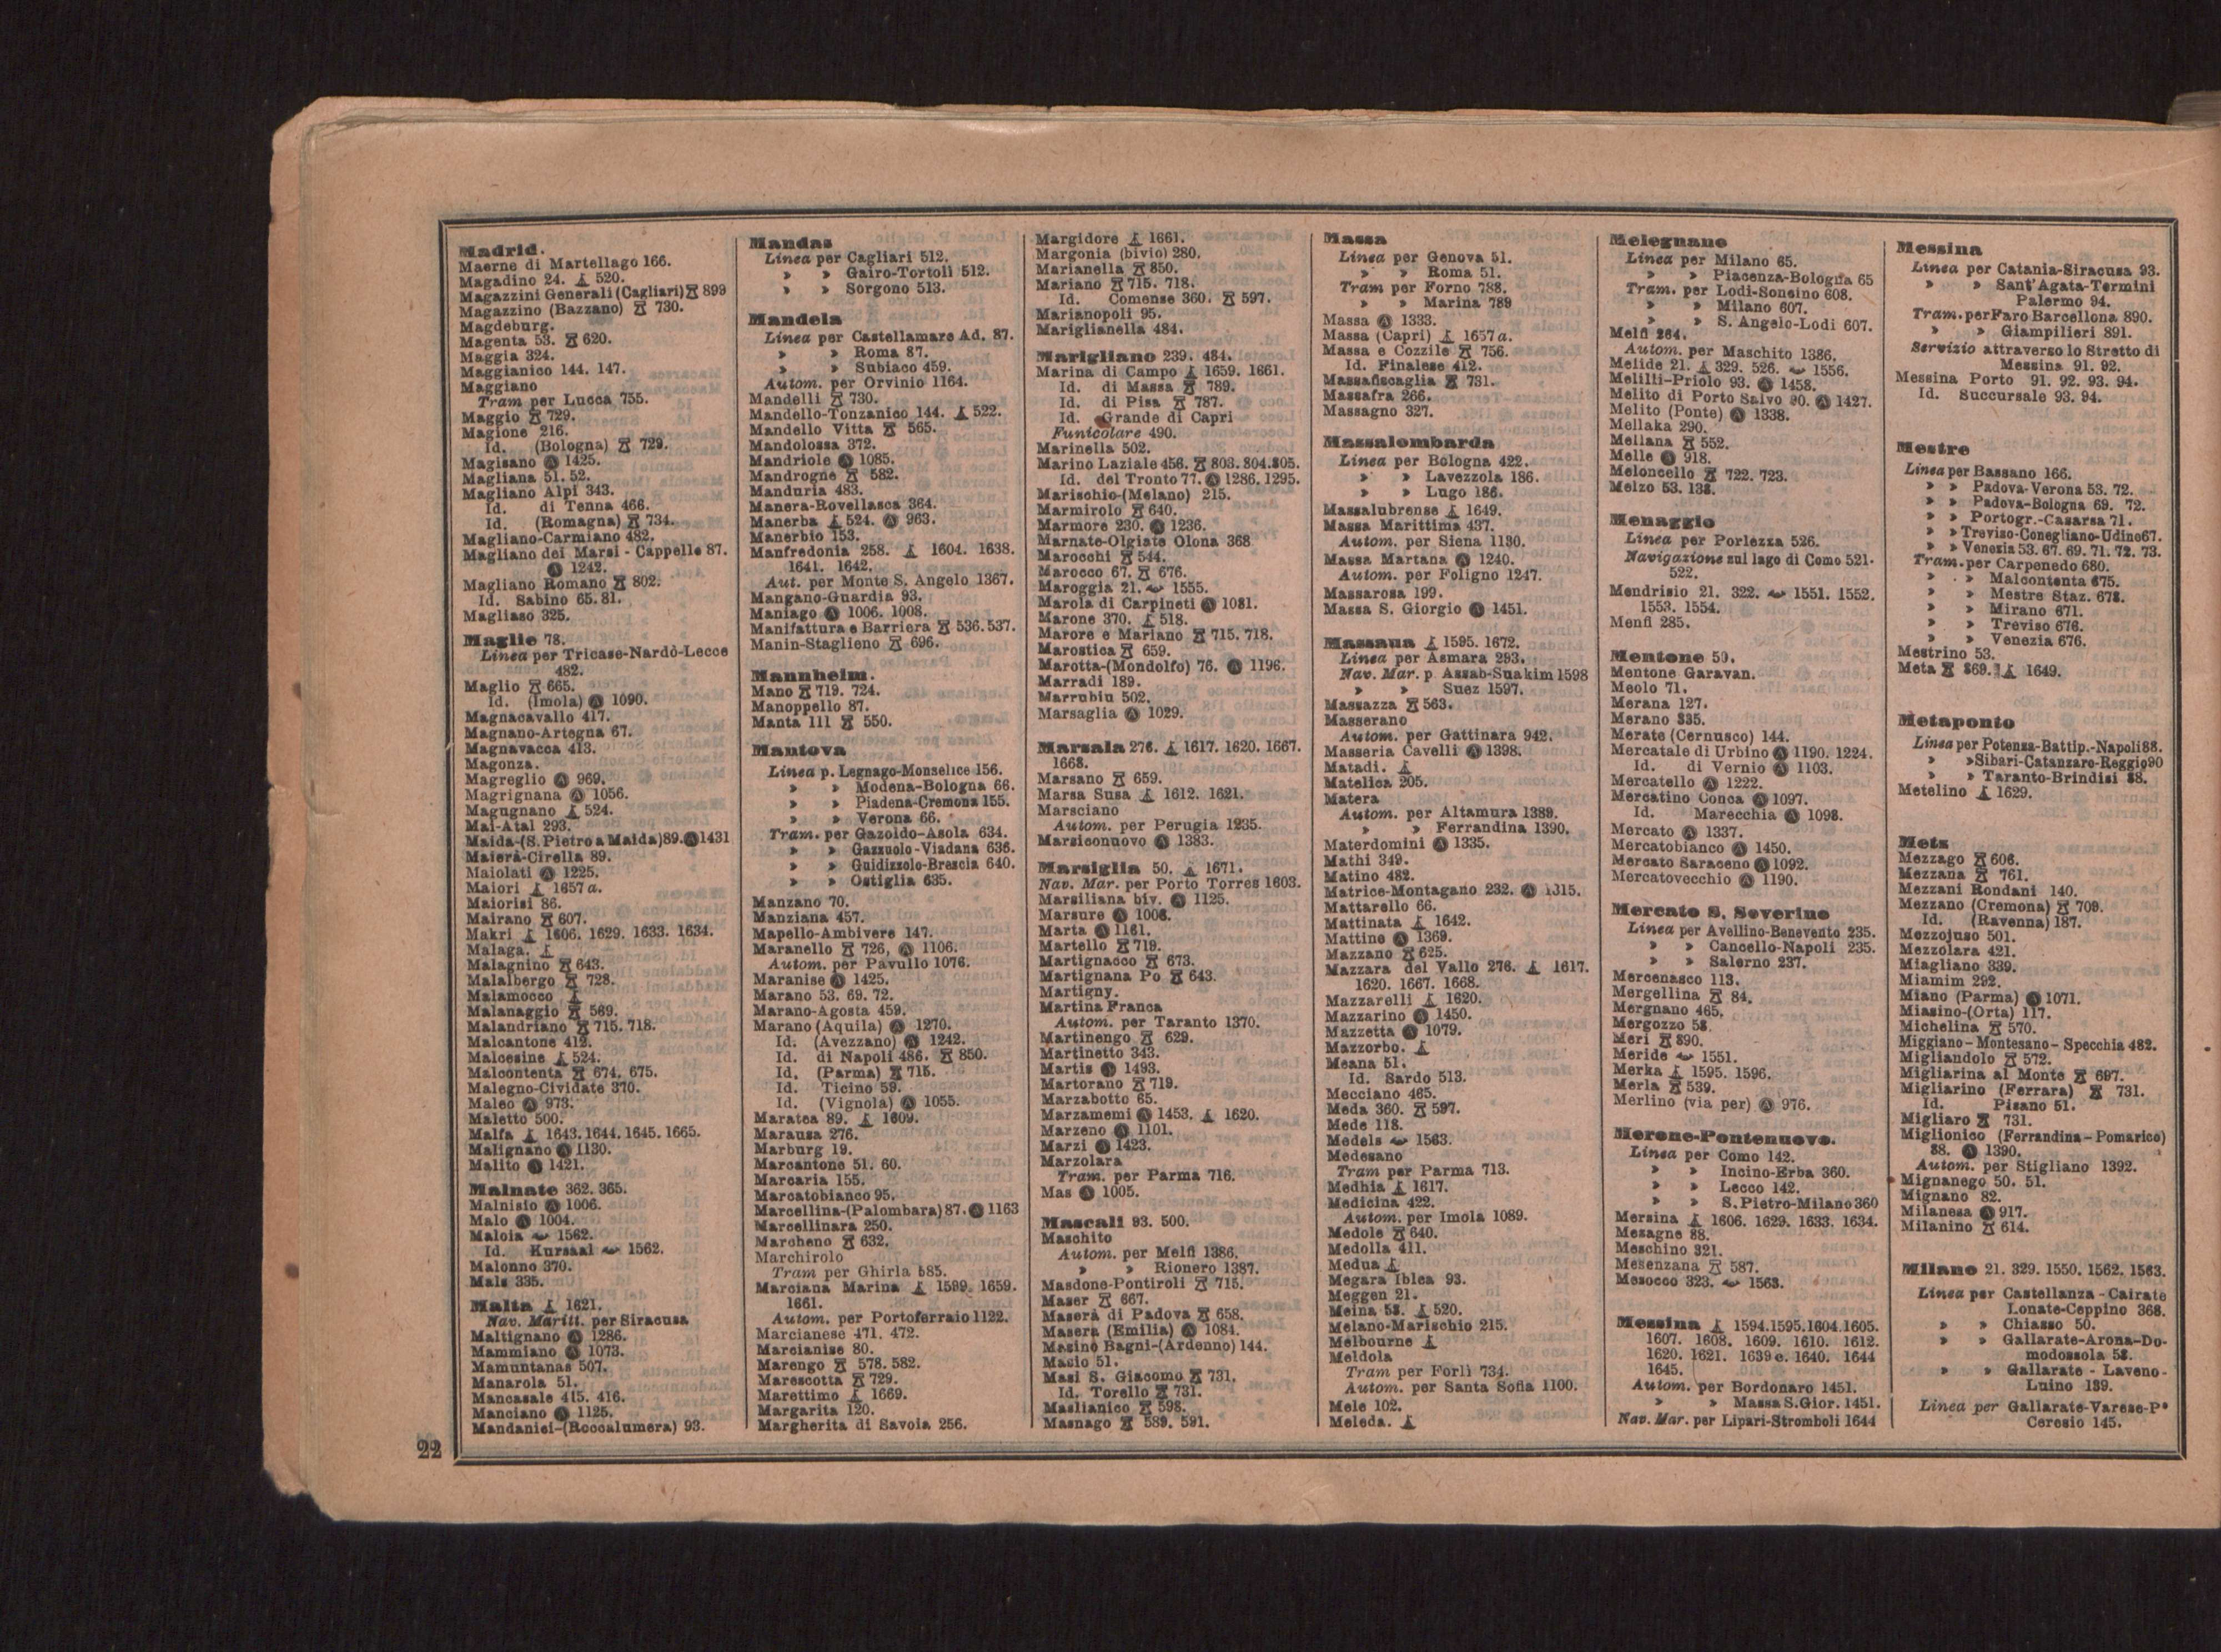 Madrid.
Maerne di Martellago 166.
Magadino 24. 520.
Magazzini Generali (Cagliari) 899
Magazzino (Bazzano) 730.
Magdeburg.
Magenta 53. 620.
Maggia 324.
Maggianico 144. 147.
Maggiano
Tram per Lucca 755.
Maggio 729.
Magione 216.
Id. (Bologna) 729.
Magisano 1425.
Magliana 51. 52.
Magliano Alpi 343.
Id. di Tenna 466.
Id. (Romagna) 734.
Magliano-Carmiano 482.
Magliano dei Marsi - Cappelle 87.
1242.
Magliano Romano 802.
Id. Sabino 65. 81.
Magliaso 325.
Maglie 78.
Linea per Tricase-Nardò-Lecce
482.
Maglio 665.
Id. (Imola) 1090.
Magnacavallo 417.
Magnano-Artegna 67.
Magnavacca 413.
Magonza.
Magreglio 969.
Magrignana 1056.
Magugnano 524.
Mai-Atal 293.
Maida-(S. Pietro a Maida) 89. 1431
Maierà-Cirella 89.
Maiolati 1225.
Maiori 1657 a.
Maiorisi 86.
Mairano 607.
Makri 1606. 1629. 1633. 1634.
Malaga.
Malagnino 643.
Malalbergo 728.
Malamocco
Malanaggio 569.
Malandriano 715. 718.
Malcantone 412.
Malcesine 524.
Malcontenta 674. 675.
Malegno-Cividate 370.
Maleo 973.
Maletto 500.
Malfa 1643. 1644. 1645. 1665.
Malignano 1130.
Malito 1421.
Malnate 362. 365.
Malnisio 1006.
Malo 1004.
Maloia 1562.
Id. Kursaal 1562.
Malonno 370.
Mals 335.
Malta 1621.
Nav. Maritt. per Siracusa
Maltignano 1286.
Mammiano 1073.
Mamuntanas 507.
Manarola 51.
Mancasale 415. 416.
Manciano 1125.
Mandanici-(Roccalumera) 93.
Mandas
Linea per Cagliari 512.
» » Gairo-Tortolì 512.
» » Sorgono 513.
Mandela
Linea per Castellamare Ad. 87.
» » Roma 87.
» » Subiaco 459.
Autom. per Orvinio 1164.
Mandelli 730.
Mandello-Tonzanico 144. 522.
Mandello Vitta 565.
Mandolossa 372.
Mandriole 1085.
Mandrogne 582.
Manduria 483.
Manera-Rovellasca 364.
Manerba 524. 963.
Manerbio 153.
Manfredonia 258. 1604. 1638.
1641. 1642.
Aut. per Monte S. Angelo 1367.
Mangano-Guardia 93.
Maniago 1006. 1008.
Manifattura e Barriera 536. 537.
Manin-Staglieno 696.
Mannheim.
Mano 719. 724.
Manoppello 87.
Manta 111 550.
Mantova
Linea p. Legnago-Monselice 156.
» » Modena-Bologna 66.
» » Piadena-Cremona 155.
» » Verona 66.
Tram. per Gazoldo-Asola 634.
» » Gazzuolo-Viadana 636.
» » Guidizzolo-Brescia 640.
» » Ostiglia 635.
Manzano 70.
Manziana 457.
Mapello-Ambivere 147.
Maranello 726, 1106.
Autom. per Pavullo 1076.
Maranise 1425.
Marano 53. 69. 72.
Marano-Agosta 459.
Marano (Aquila) 1270.
Id. (Avezzano) 1242.
Id. di Napoli 486. 850.
Id. (Parma) 715.
Id. Ticino 59.
Id. (Vignola) 1055.
Maratea 89. 1609.
Marausa 276.
Marburg 19.
Marcantone 51. 60.
Marcaria 155.
Marcatobianco 95.
Marcellina-(Palombara) 87. 1163
Marcellinara 250.
Marcheno 632.
Marchirolo
Tram per Ghirla 585.
Marciana Marina 1599. 1659.
1661.
Autom. per Portoferraio 1122.
Marcianese 471. 472.
Marcianise 80.
Marengo 578. 582.
Marescotta 729.
Marettimo 1669.
Margarita 120.
Margherita di Savoia 256.
Margidore 1661.
Margonia (bivio) 280.
Marianella 850.
Mariano 715. 718.
Id. Comense 360. 597.
Marianopoli 95.
Mariglianella 484.
Marigliano 239. 484.
Marina di Campo 1659. 1661.
Id. di Massa 789.
Id. di Pisa 787.
Id. Grande di Capri
Funicolare 490.
Marinella 502.
Marino Laziale 456. 803. 804. 805.
Id. del Tronto 77. 1286. 1295.
Marischio-(Melano) 215.
Marmirolo 640.
Marmore 230. 1236.
Marnate-Olgiate Olona 368
Marocchi 544.
Marocco 67. 676.
Maroggia 21. 1555.
Marola di Carpineti 1081.
Marone 370. 518.
Marore e Mariano 715. 718.
Marostica 659.
Marotta-(Mondolfo) 76. 1196.
Marradi 189.
Marrubiu 502.
Marsaglia 1029.
Marsala 276. 1617. 1620. 1667.
1668.
Marsano 659.
Marsa Susa 1612. 1621.
Marsciano
Autom. per Perugia 1235.
Marsiconuovo 1383.
Marsiglia 50. 1671.
Nav. Mar. per Porto Torres 1603.
Marsiliana biv. 1125.
Marsure 1006.
Marta 1161.
Martello 719.
Martignacco 673.
Martignana Po 643.
Martigny.
Martina Franca
Autom. per Taranto 1370.
Martinengo 629.
Martinetto 343.
Martis 1493.
Martorano 719.
Marzabotto 65.
Marzamemi 1453. 1620.
Marzeno 1101.
Marzi 1423.
Marzolara
Tram. per Parma 716.
Mas 1005.
Mascali 93. 500.
Maschito
Autom. per Melfi 1386.
» » Rionero 1387.
Masdone-Pontiroli 715.
Maser 667.
Maserà di Padova 658.
Masera (Emilia) 1084.
Masino Bagni-(Ardenno) 144.
Masio 51.
Masi S. Giacomo 731.
Id. Torello 731.
Maslianico 598.
Masnago 589. 591.
Massa
Linea per Genova 51.
» » Roma 51.
Tram per Forno 788.
» » Marina 789
Massa 1333.
Massa (Capri) 1657 a.
Massa e Cozzile 756.
Id. Finalese 412.
Massafiscaglia 731.
Massafra 266.
Massagno 327.
Massalombarda
Linea per Bologna 422.
» » Lavezzola 186.
» » Lugo 186.
Massalubrense 1649.
Massa Marittima 437.
Autom. per Siena 1130.
Massa Martana 1240.
Autom. per Foligno 1247.
Massarosa 199.
Massa S. Giorgio 1451.
Massaua 1595. 1672.
Linea per Asmara 293.
Nav. Mar. p. Assab-Suakim 1598
» » Suez 1597.
Massazza 563.
Masserano
Autom. per Gattinara 942.
Masseria Cavelli 1398.
Matadi.
Matelica 205.
Matera
Autom. per Altamura 1389.
» » Ferrandina 1390.
Materdomini 1335.
Mathi 349.
Matino 482.
Matrice-Montagano 232. 1315.
Mattarello 66.
Mattinata 1642.
Mattine 1369.
Mazzano 625.
Mazzara del Vallo 276. 1617.
1620. 1667. 1668.
Mazzarelli 1620.
Mazzarino 1450.
Mazzetta 1079.
Mazzorbo.
Meana 51.
Id. Sardo 513.
Mecciano 465.
Meda 360. 597.
Mede 118.
Medels 1563.
Medesano
Tram per Parma 713.
Medhia 1617.
Medicina 422.
Autom. per Imola 1089.
Medole 640.
Medolla 411.
Medua
Megara Iblea 93.
Meggen 21.
Meina 58. 520.
Melano-Marischio 215.
Melbourne
Meldola
Tram per Forlì 734.
Autom. per Santa Sofia 1100.
Mele 102.
Meleda.
Melegnano
Linea per Milano 65.
» » Piacenza-Bologna 65
Tram. per Lodi-Soncino 608.
» » Milano 607.
» » S. Angelo-Lodi 607.
Melfi 264.
Autom. per Maschito 1386.
Melide 21. 329. 526. 1556.
Melilli-Priolo 93. 1458.
Melito di Porto Salvo 90. 1427.
Melito (Ponte) 1338.
Mellaka 290.
Mellana 552.
Melle 918.
Meloncello 722. 723.
Melzo 53. 138.
Menaggio
Linea per Porlezza 526.
Navigazione sul lago di Como 521-
522.
Mendrisio 21. 322. 1551. 1552.
1553. 1554.
Menfi 285.
Mentone 59.
Mentone Garavan.
Meolo 71.
Merana 127.
Merano 335.
Merate (Cernusco) 144.
Mercatale di Urbino 1190. 1224.
Id. di Vernio 1103.
Mercatello 1222.
Mercatino Conca 1097.
Id. Marecchia 1098.
Mercato 1337.
Mercatobianco 1450.
Mercato Saraceno 1092.
Mercatovecchio 1190.
Mercato S. Severino
Linea per Avellino-Benevento 235.
» » Cancello-Napoli 235.
» » Salerno 237.
Mercenasco 113.
Mergellina 84.
Mergnano 465.
Mergozzo 58.
Merì 890.
Meride 1551.
Merka 1595. 1596.
Merla 539.
Merlino (via per) 976.
Merone-Pontenuovo.
Linea per Como 142.
» » Incino-Erba 360.
» » Lecco 142.
» » S. Pietro-Milano 360
Mersina 1606. 1629. 1633. 1634.
Mesagne 88.
Meschino 321.
Mesenzana 587.
Mesocco 323. 1563.
Messina 1594. 1595. 1604. 1605.
1607. 1608. 1609. 1610. 1612.
1620. 1621. 1639 c. 1640. 1644
1645.
Autom. per Bordonaro 1451.
» » Massa S. Gior. 1451.
Nav. Mar. per Lipari-Stromboli 1644
Messina
Linea per Catania-Siracusa 93.
» » Sant'Agata-Termini
Palermo 94.
Tram. per Faro Barcellona 890.
» » Giampilieri 891.
Servizio attraverso lo Stretto di
Messina 91. 92.
Messina Porto 91. 92. 93. 94.
Id. Succursale 93. 94.
Mestre
Linea per Bassano 166.
» » Padova-Verona 53. 72.
» » Padova-Bologna 69. 72.
» » Portogr.-Casarsa 71.
» » Treviso-Conegliano-Udine 67.
» » Venezia 53. 67. 69. 71. 72. 73.
Tram. per Carpenedo 680.
» » Malcontenta 675.
» » Mestre Staz. 678.
» » Mirano 671.
» » Treviso 676.
» » Venezia 676.
Mestrino 53.
Meta 869. 1649.
Metaponto
Linea per Potenza-Battip.-Napoli 88.
» » Sibari-Catanzaro-Reggio 90
» » Taranto-Brindisi 88.
Metelino 1629.
Metz
Mezzago 606.
Mezzana 761.
Mezzani Rondani 140.
Mezzano (Cremona) 709.
Id. (Ravenna) 187.
Mezzojuso 501.
Mezzolara 421.
Miagliano 339.
Miamim 292.
Miano (Parma) 1071.
Miasino-(Orta) 117.
Michelina 570.
Miggiano - Montesano - Specchia 482.
Migliandolo 572.
Migliarina al Monte 697.
Migliarino (Ferrara) 731.
Id. Pisano 51.
Migliaro 731.
Miglionico (Ferrandina - Pomarico)
88. 1390.
Autom. per Stigliano 1392.
Mignanego 50. 51.
Mignano 82.
Milanesa 917.
Milanino 614.
Milano 21. 329. 1550. 1562. 1563.
Linea per Castellanza - Cairate
Lonate-Ceppino 368.
» » Chiasso 50.
» » Gallarate-Arona-Do-
modossola 58.
» » Gallarate - Laveno -
Luino 139.
Linea per Gallarate-Varese-P°
Ceresio 145.
22